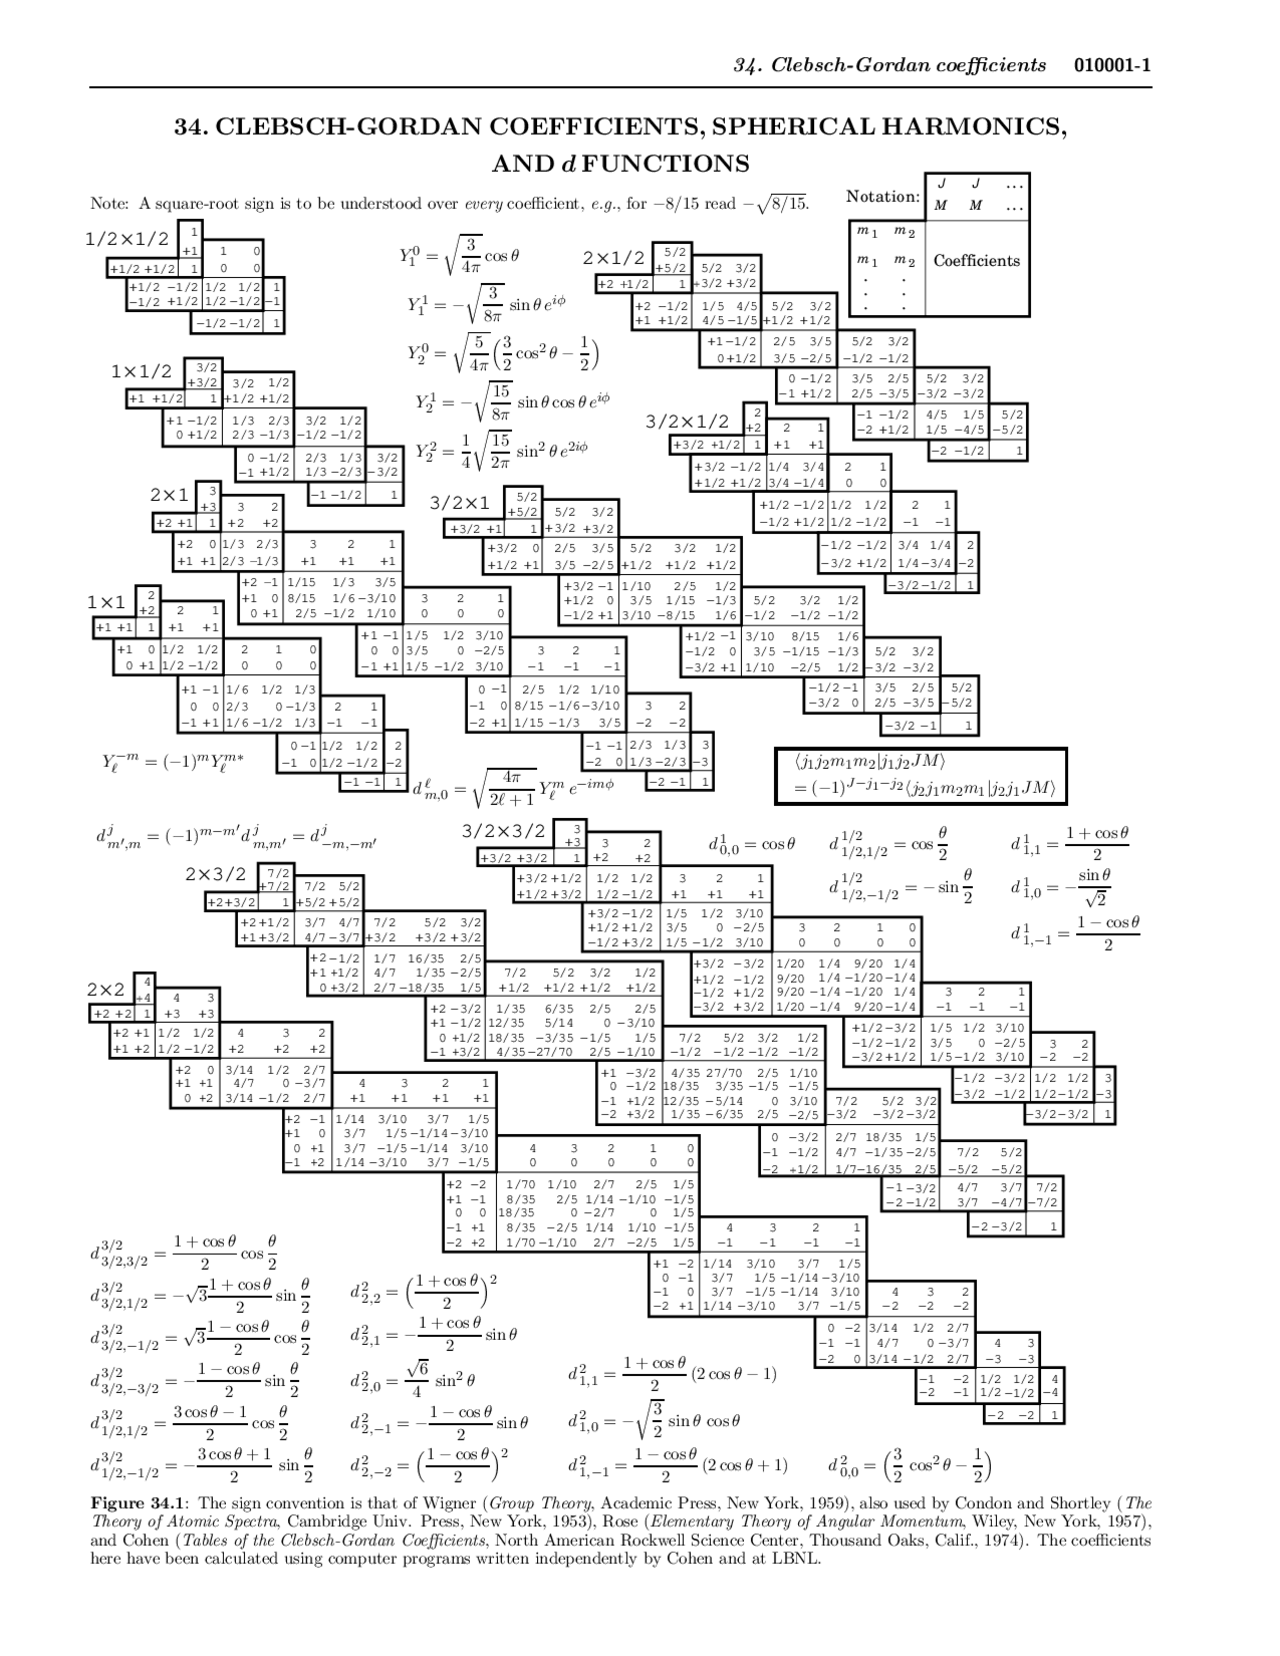 34. Clebsch-Gordan coefficients 010001-1
34. CLEBSCH-GORDAN COEFFICIENTS, SPHERICAL HARMONICS,
AND d FUNCTIONS
Note: A square-root sign is to be understood over every coefficient, e.g., for −8/15 read −√8/15.
Notation:
J J ...
M M ...
m1 m2
m1 m2 Coefficients
. .
. .
. .
1/2×1/2
1
+1 1 0
+1/2 +1/2 1 0 0
+1/2 −1/2 1/2 1/2 1
−1/2 +1/2 1/2 −1/2 −1
−1/2 −1/2 1
1×1/2
3/2
+3/2 3/2 1/2
+1 +1/2 1 +1/2 +1/2
+1 −1/2 1/3 2/3 3/2 1/2
0 +1/2 2/3 −1/3 −1/2 −1/2
0 −1/2 2/3 1/3 3/2
−1 +1/2 1/3 −2/3 −3/2
−1 −1/2 1
2×1
3
+3 3 2
+2 +1 1 +2 +2
+2 0 1/3 2/3 3 2 1
+1 +1 2/3 −1/3 +1 +1 +1
+2 −1 1/15 1/3 3/5
+1 0 8/15 1/6 −3/10 3 2 1
0 +1 2/5 −1/2 1/10 0 0 0
+1 −1 1/5 1/2 3/10
0 0 3/5 0 −2/5 3 2 1
−1 +1 1/5 −1/2 3/10 −1 −1 −1
0 −1 2/5 1/2 1/10
−1 0 8/15 −1/6 −3/10 3 2
−2 +1 1/15 −1/3 3/5 −2 −2
−1 −1 2/3 1/3 3
−2 0 1/3 −2/3 −3
−2 −1 1
1×1
2
+2 2 1
+1 +1 1 +1 +1
+1 0 1/2 1/2 2 1 0
0 +1 1/2 −1/2 0 0 0
+1 −1 1/6 1/2 1/3
0 0 2/3 0 −1/3 2 1
−1 +1 1/6 −1/2 1/3 −1 −1
0 −1 1/2 1/2 2
−1 0 1/2 −1/2 −2
−1 −1 1
Y_1^0 = √(3/4π) cos θ
Y_1^1 = −√(3/8π) sin θ e^{iφ}
Y_2^0 = √(5/4π) (3/2 cos² θ − 1/2)
Y_2^1 = −√(15/8π) sin θ cos θ e^{iφ}
Y_2^2 = 1/4 √(15/2π) sin² θ e^{2iφ}
2×1/2
5/2
+5/2 5/2 3/2
+2 +1/2 1 +3/2 +3/2
+2 −1/2 1/5 4/5 5/2 3/2
+1 +1/2 4/5 −1/5 +1/2 +1/2
+1 −1/2 2/5 3/5 5/2 3/2
0 +1/2 3/5 −2/5 −1/2 −1/2
0 −1/2 3/5 2/5 5/2 3/2
−1 +1/2 2/5 −3/5 −3/2 −3/2
−1 −1/2 4/5 1/5 5/2
−2 +1/2 1/5 −4/5 −5/2
−2 −1/2 1
3/2×1/2
2
+2 2 1
+3/2 +1/2 1 +1 +1
+3/2 −1/2 1/4 3/4 2 1
+1/2 +1/2 3/4 −1/4 0 0
+1/2 −1/2 1/2 1/2 2 1
−1/2 +1/2 1/2 −1/2 −1 −1
−1/2 −1/2 3/4 1/4 2
−3/2 +1/2 1/4 −3/4 −2
−3/2 −1/2 1
3/2×1
5/2
+5/2 5/2 3/2
+3/2 +1 1 +3/2 +3/2
+3/2 0 2/5 3/5 5/2 3/2 1/2
+1/2 +1 3/5 −2/5 +1/2 +1/2 +1/2
+3/2 −1 1/10 2/5 1/2
+1/2 0 3/5 1/15 −1/3 5/2 3/2 1/2
−1/2 +1 3/10 −8/15 1/6 −1/2 −1/2 −1/2
+1/2 −1 3/10 8/15 1/6
−1/2 0 3/5 −1/15 −1/3 5/2 3/2
−3/2 +1 1/10 −2/5 1/2 −3/2 −3/2
−1/2 −1 3/5 2/5 5/2
−3/2 0 2/5 −3/5 −5/2
−3/2 −1 1
Y_ℓ^{−m} = (−1)^m Y_ℓ^{m*}
d^ℓ_{m,0} = √(4π/(2ℓ+1)) Y_ℓ^m e^{−imφ}
⟨j1j2m1m2|j1j2JM⟩
= (−1)^{J−j1−j2}⟨j2j1m2m1|j2j1JM⟩
d^j_{m′,m} = (−1)^{m−m′} d^j_{m,m′} = d^j_{−m,−m′}
3/2×3/2
3
+3 3 2
+3/2 +3/2 1 +2 +2
+3/2 +1/2 1/2 1/2 3 2 1
+1/2 +3/2 1/2 −1/2 +1 +1 +1
+3/2 −1/2 1/5 1/2 3/10
+1/2 +1/2 3/5 0 −2/5 3 2 1 0
−1/2 +3/2 1/5 −1/2 3/10 0 0 0 0
+3/2 −3/2 1/20 1/4 9/20 1/4
+1/2 −1/2 9/20 1/4 −1/20 −1/4
−1/2 +1/2 9/20 −1/4 −1/20 1/4 3 2 1
−3/2 +3/2 1/20 −1/4 9/20 −1/4 −1 −1 −1
+1/2 −3/2 1/5 1/2 3/10
−1/2 −1/2 3/5 0 −2/5 3 2
−3/2 +1/2 1/5 −1/2 3/10 −2 −2
−1/2 −3/2 1/2 1/2 3
−3/2 −1/2 1/2 −1/2 −3
−3/2 −3/2 1
d^1_{0,0} = cos θ
d^{1/2}_{1/2,1/2} = cos θ/2
d^{1/2}_{1/2,−1/2} = − sin θ/2
d^1_{1,1} = (1 + cos θ)/2
d^1_{1,0} = − sin θ/√2
d^1_{1,−1} = (1 − cos θ)/2
2×3/2
7/2
+7/2 7/2 5/2
+2 +3/2 1 +5/2 +5/2
+2 +1/2 3/7 4/7 7/2 5/2 3/2
+1 +3/2 4/7 −3/7 +3/2 +3/2 +3/2
+2 −1/2 1/7 16/35 2/5
+1 +1/2 4/7 1/35 −2/5 7/2 5/2 3/2 1/2
0 +3/2 2/7 −18/35 1/5 +1/2 +1/2 +1/2 +1/2
+2 −3/2 1/35 6/35 2/5 2/5
+1 −1/2 12/35 5/14 0 −3/10
0 +1/2 18/35 −3/35 −1/5 1/5 7/2 5/2 3/2 1/2
−1 +3/2 4/35 −27/70 2/5 −1/10 −1/2 −1/2 −1/2 −1/2
+1 −3/2 4/35 27/70 2/5 1/10
0 −1/2 18/35 3/35 −1/5 −1/5
−1 +1/2 12/35 −5/14 0 3/10 7/2 5/2 3/2
−2 +3/2 1/35 −6/35 2/5 −2/5 −3/2 −3/2 −3/2
0 −3/2 2/7 18/35 1/5
−1 −1/2 4/7 −1/35 −2/5 7/2 5/2
−2 +1/2 1/7 −16/35 2/5 −5/2 −5/2
−1 −3/2 4/7 3/7 7/2
−2 −1/2 3/7 −4/7 −7/2
−2 −3/2 1
2×2
4
+4 4 3
+2 +2 1 +3 +3
+2 +1 1/2 1/2 4 3 2
+1 +2 1/2 −1/2 +2 +2 +2
+2 0 3/14 1/2 2/7
+1 +1 4/7 0 −3/7 4 3 2 1
0 +2 3/14 −1/2 2/7 +1 +1 +1 +1
+2 −1 1/14 3/10 3/7 1/5
+1 0 3/7 1/5 −1/14 −3/10
0 +1 3/7 −1/5 −1/14 3/10 4 3 2 1 0
−1 +2 1/14 −3/10 3/7 −1/5 0 0 0 0 0
+2 −2 1/70 1/10 2/7 2/5 1/5
+1 −1 8/35 2/5 1/14 −1/10 −1/5
0 0 18/35 0 −2/7 0 1/5
−1 +1 8/35 −2/5 1/14 1/10 −1/5 4 3 2 1
−2 +2 1/70 −1/10 2/7 −2/5 1/5 −1 −1 −1 −1
+1 −2 1/14 3/10 3/7 1/5
0 −1 3/7 1/5 −1/14 −3/10
−1 0 3/7 −1/5 −1/14 3/10 4 3 2
−2 +1 1/14 −3/10 3/7 −1/5 −2 −2 −2
0 −2 3/14 1/2 2/7
−1 −1 4/7 0 −3/7 4 3
−2 0 3/14 −1/2 2/7 −3 −3
−1 −2 1/2 1/2 4
−2 −1 1/2 −1/2 −4
−2 −2 1
d^{3/2}_{3/2,3/2} = (1 + cos θ)/2 cos θ/2
d^{3/2}_{3/2,1/2} = −√3 (1 + cos θ)/2 sin θ/2
d^{3/2}_{3/2,−1/2} = √3 (1 − cos θ)/2 cos θ/2
d^{3/2}_{3/2,−3/2} = − (1 − cos θ)/2 sin θ/2
d^{3/2}_{1/2,1/2} = (3 cos θ − 1)/2 cos θ/2
d^{3/2}_{1/2,−1/2} = − (3 cos θ + 1)/2 sin θ/2
d^2_{2,2} = ((1 + cos θ)/2)²
d^2_{2,1} = − (1 + cos θ)/2 sin θ
d^2_{2,0} = √6/4 sin² θ
d^2_{2,−1} = − (1 − cos θ)/2 sin θ
d^2_{2,−2} = ((1 − cos θ)/2)²
d^2_{1,1} = (1 + cos θ)/2 (2 cos θ − 1)
d^2_{1,0} = −√(3/2) sin θ cos θ
d^2_{1,−1} = (1 − cos θ)/2 (2 cos θ + 1)
d^2_{0,0} = (3/2 cos² θ − 1/2)
Figure 34.1: The sign convention is that of Wigner (Group Theory, Academic Press, New York, 1959), also used by Condon and Shortley (The
Theory of Atomic Spectra, Cambridge Univ. Press, New York, 1953), Rose (Elementary Theory of Angular Momentum, Wiley, New York, 1957),
and Cohen (Tables of the Clebsch-Gordan Coefficients, North American Rockwell Science Center, Thousand Oaks, Calif., 1974). The coefficients
here have been calculated using computer programs written independently by Cohen and at LBNL.